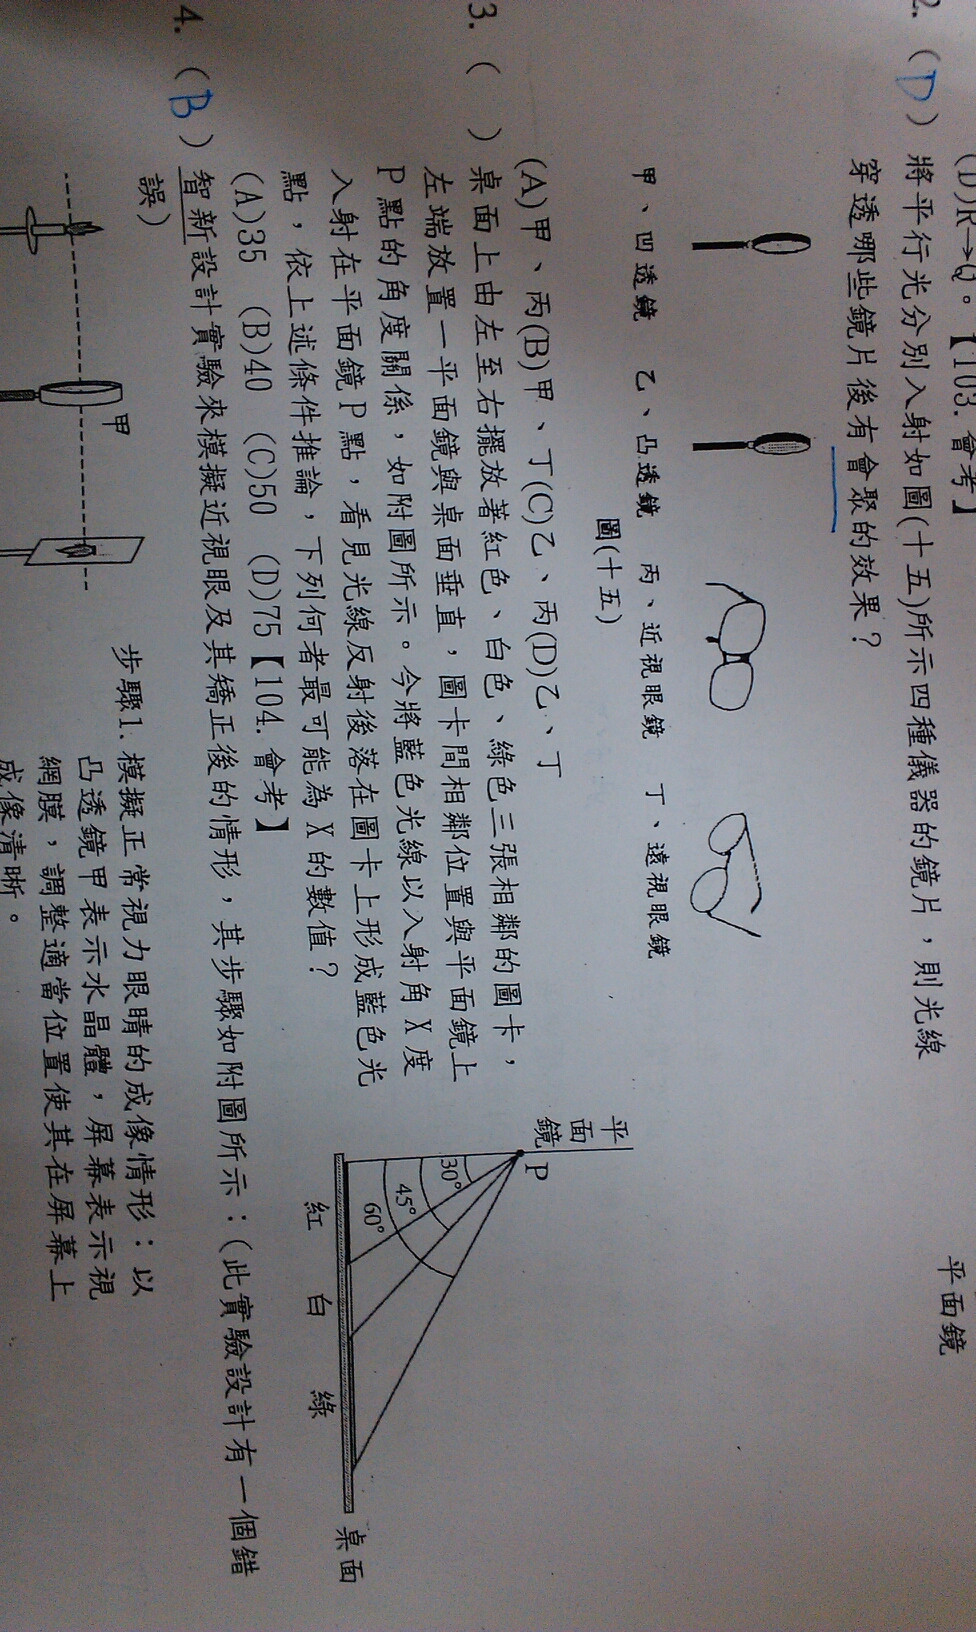 (D)R→Q。【103.會考】
平面鏡
2.(D)將平行光分別入射如圖(十五)所示四種儀器的鏡片，則光線
穿透哪些鏡片後有會聚的效果？
甲、凹透鏡 乙、凸透鏡 丙、近視眼鏡 丁、遠視眼鏡
圖(十五)
(A)甲、丙(B)甲、丁(C)乙、丙(D)乙、丁
3.( )桌面上由左至右擺放著紅色、白色、綠色三張相鄰的圖卡，
左端放置一平面鏡與桌面垂直，圖卡間相鄰位置與平面鏡上
P點的角度關係，如附圖所示。今將藍色光線以入射角X度
入射在平面鏡P點，看見光線反射後落在圖卡上形成藍色光
點，依上述條件推論，下列何者最可能為X的數值？
(A)35 (B)40 (C)50 (D)75【104.會考】
平面鏡
P
30°
45°
60°
紅 白 綠
桌面
4.(B)智新設計實驗來模擬近視眼及其矯正後的情形，其步驟如附圖所示：(此實驗設計有一個錯
誤)
甲
步驟1.模擬正常視力眼睛的成像情形：以
凸透鏡甲表示水晶體，屏幕表示視
網膜，調整適當位置使其在屏幕上
成像清晰。